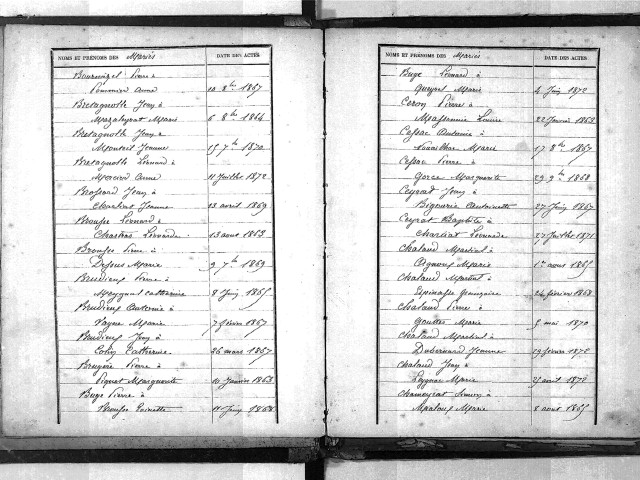 NOMS ET PRÉNOMS DES Mariés DATE DES ACTES
Pierre à
Pommier Anne 10 8bre 1867
Bretagnolle Jean à
Mazaleyrat Marie 6 8bre 1864
Bretagnolle Jean à
Monteil Jeanne 15 7bre 1870
Bretagnolle Léonard à
Mercier Anne 11 Juillet 1872
Brossard Jean à
Jeanne 13 avril 1869
Broufse Léonard à
Chastres Léonarde 13 aout 1862
Broufse Pierre à
Marie 9 7bre 1869
Brudieux Pierre à
Meygnal Catherine 8 Juin 1865
Brudieux Antoine à
Vayne Marie 7 février 1867
Brudieux Jean à
Catherine 26 mars 1867
Bruyère Pierre à
Piquet Marguerite 10 Janvier 1863
Buge Pierre à
Broufse 11 Juin 1868
NOMS ET PRÉNOMS DES Mariés DATE DES ACTES
Buge Léonard à
Queyrel Marie 4 Juin 1872
Ceron Pierre à
Louise 22 Janvier 1862
Antoine à
Marie 17 8bre 1867
Pierre à
Gorce Marguerite 29 9bre 1868
Ceyrat Jean à
Bigourie Antoinette 27 Juin 1867
Ceyrat Baptiste à
Charliat Léonarde 27 Juillet 1871
Chalaud Martial à
Marie 1er aout 1865
Chalaud Martial à
Espinasse Françoise 24 février 1868
Chalaud Pierre à
Gouttes Marie 5 mai 1870
Chalaud Martial à
Dubernard Jeanne 19 février 1872
Chalaud Jean à
Marie avril 1872
Chameyrat à
Marie 8 aout 1865